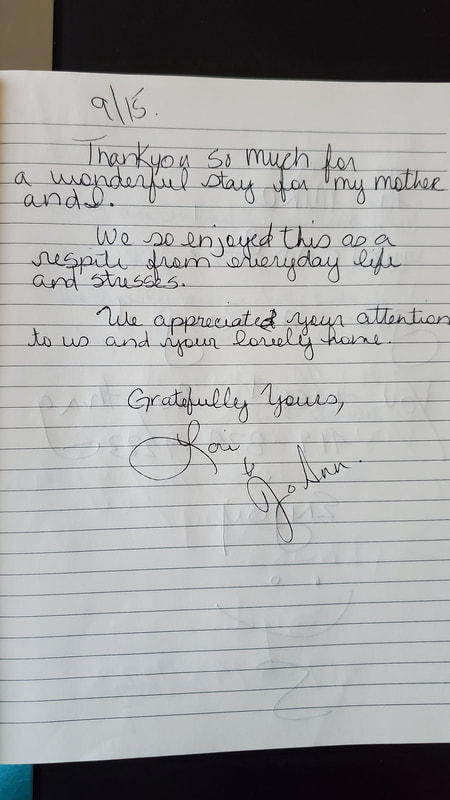 9/15.
Thankyou so much for
a wonderful stay for my mother
and I.
We so enjoyed this as a
respite from everyday life
and stresses.
We appreciated your attention
to us and your lovely home.
Gratefully Yours,
Lori
& Jo Ann.